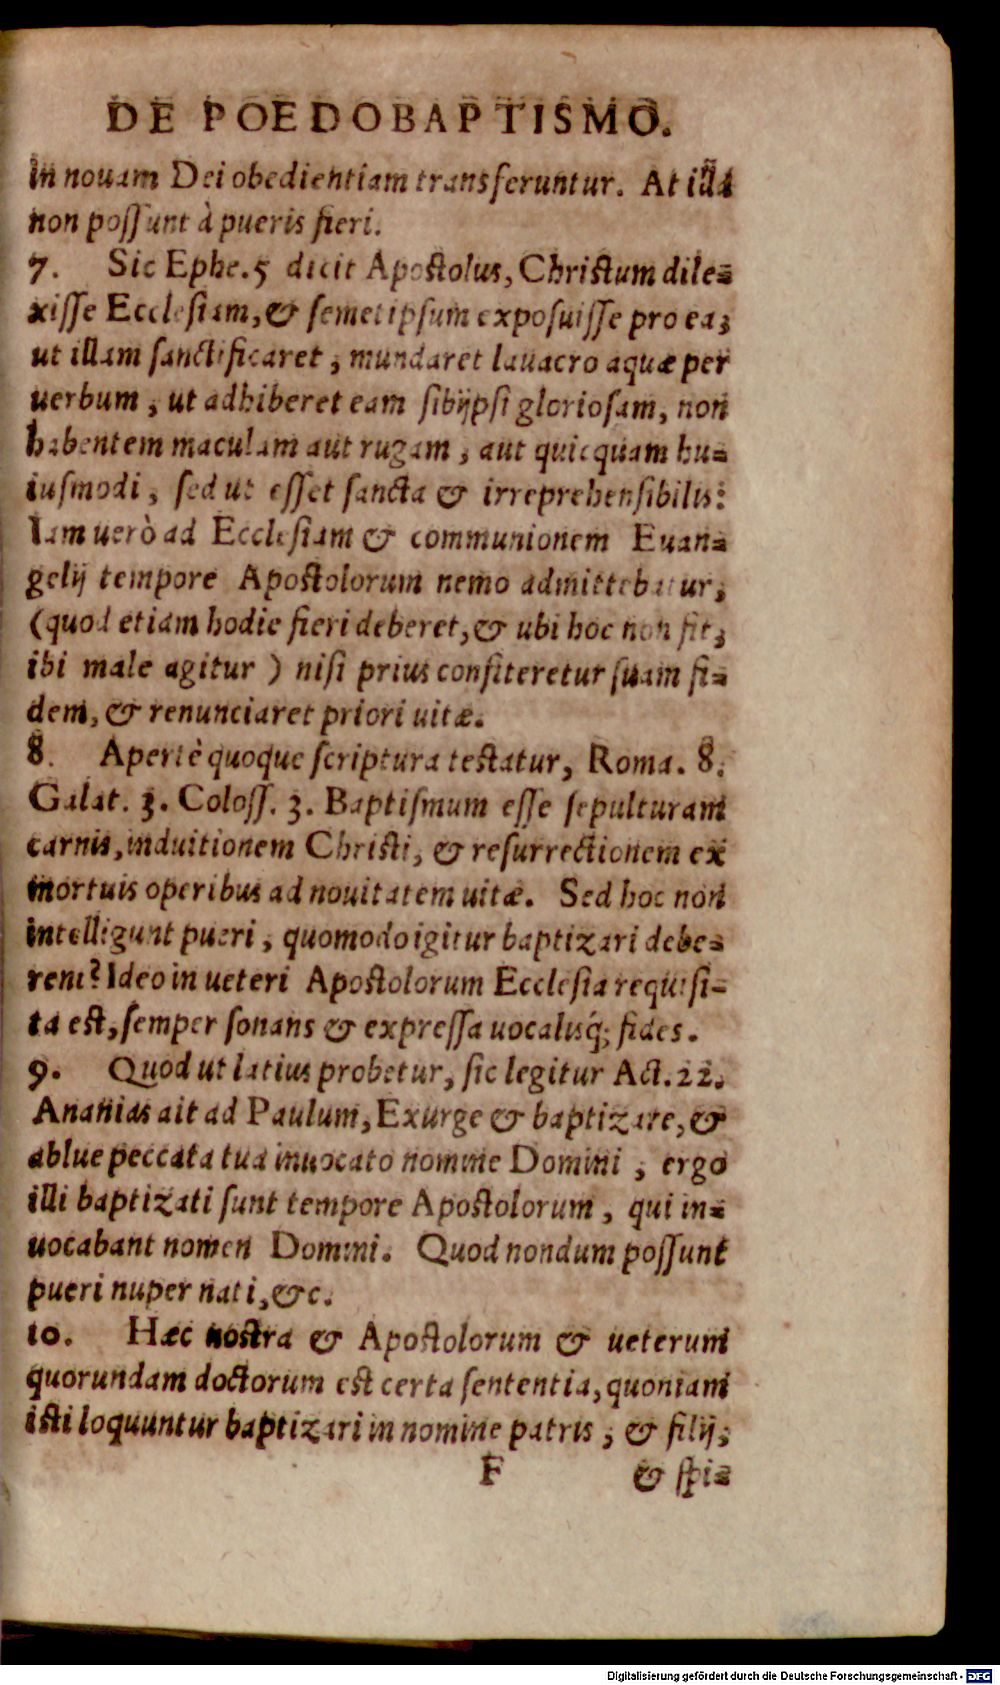 DE POEDOBAPTISMO.
in nouam Dei obedientiam transferuntur. At illa
non possunt à pueris fieri.
7. Sic Ephe. 5 dicit Apostolus, Christum dile=
xisse Ecclesiam, & semetipsum exposuisse pro ea,
ut illam sanctificaret, mundaret lauacro aquæ per
uerbum, ut adhiberet eam sibijpsi gloriosam, non
habentem maculam aut rugam, aut quicquam hu=
iusmodi, sed ut esset sancta & irreprehensibilis:
Iam uerò ad Ecclesiam & communionem Euan=
gelij tempore Apostolorum nemo admittebatur,
(quod etiam hodie fieri deberet, & ubi hoc non fit,
ibi male agitur) nisi prius confiteretur suam fi=
dem, & renunciaret priori uitæ.
8. Apertè quoque scriptura testatur, Roma. 8.
Galat. 3. Coloss. 3. Baptismum esse sepulturam
carnis, induitionem Christi, & resurrectionem ex
mortuis operibus ad nouitatem uitæ. Sed hoc non
intelligunt pueri, quomodo igitur baptizari debe=
rent? Ideo in ueteri Apostolorum Ecclesia requisi=
ta est, semper sonans & expressa uocalisq́; fides.
9. Quod ut latius probetur, sic legitur Act. 22.
Ananias ait ad Paulum, Exurge & baptizare, &
ablue peccata tua inuocato nomine Domini, ergo
illi baptizati sunt tempore Apostolorum, qui in=
uocabant nomen Domini. Quod nondum possunt
pueri nuper nati, &c.
10. Hæc nostra & Apostolorum & ueterum
quorundam doctorum est certa sententia, quoniam
isti loquuntur baptizari in nomine patris, & filij,
F & spi=
Digitalisierung gefördert durch die Deutsche Forschungsgemeinschaft - DFG